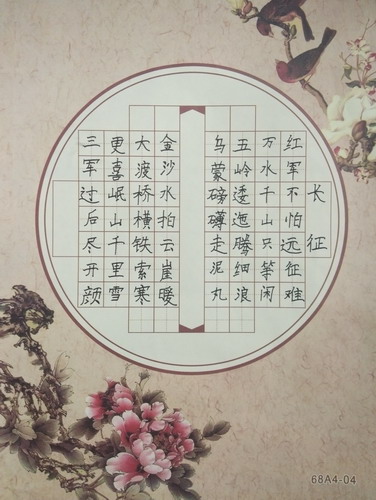 长征
红军不怕远征难
万水千山只等闲
五岭逶迤腾细浪
乌蒙磅礴走泥丸
金沙水拍云崖暖
大渡桥横铁索寒
更喜岷山千里雪
三军过后尽开颜
68A4-04